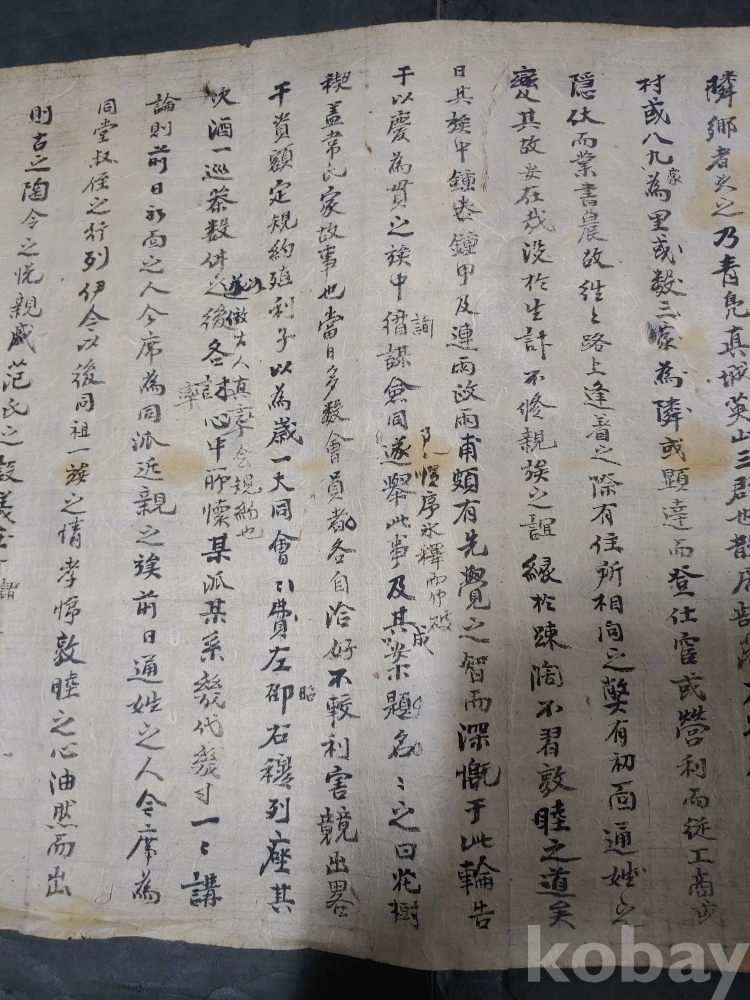 隣鄕者久之乃靑鳧眞城英山三郡也散居
村或八九家爲里或數三家爲隣或顯達而登仕宦或營利而從工商或
隠伏而業書農故徃〻路上逢着之際有住所相問之弊有初面通姓之
變其故安在哉沒於生計不修親族之誼緣於踈闊不習敦睦之道矣
日其族中鍾泰鍾甲及連雨政雨甫頗有先覺之智而深慨于此輪告
于以慶爲貫之族中詢謀僉同遂擧此事及其案成題名〻之曰花樹
凡慣序氷釋而
稧盖韋氏家故事也當日多數會員都各自洽好不較利害競出畧
干資額定規約殖利子以爲歲一大同會〻費左昭右穆列座其
次酒一巡茶數件之後各討心中所懷某派某系幾代幾寸一〻講
以遂倣古人眞率會規約也
論則前日初面之人今席爲同派近親之族前日通姓之人今席爲
同堂叔侄之行列伊今以後同祖一族之情孝悌敦睦之心油然而出
則古之陶令之悅親戚范氏之設義
kobay